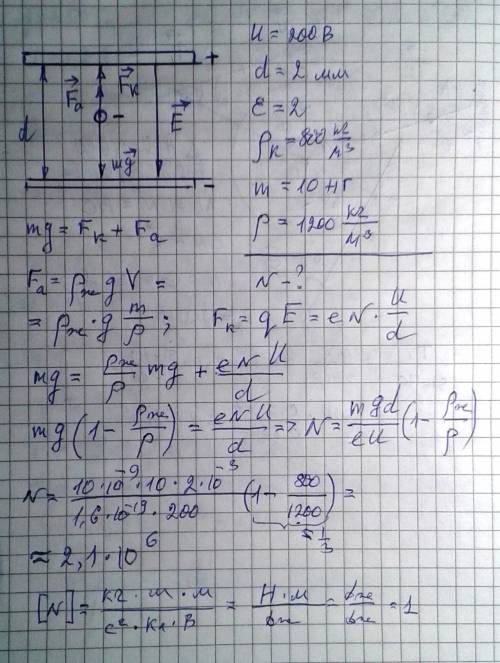 U = 200 В
d = 2 мм
ε = 2
ρк = 800 кг/м³
m = 10 нг
ρ = 1200 кг/м³
N - ?
+
Fк
Fа
d
-
E
mg
-
mg = Fк + Fа
Fа = ρж g V =
= ρж · g m/ρ ; Fк = qE = eN · U/d
mg = ρж/ρ mg + eNU/d
mg (1 - ρж/ρ) = eNU/d => N = mgd/eU (1 - ρж/ρ)
N = 10·10⁻⁹·10·2·10⁻³/1,6·10⁻¹⁹·200 (1 - 800/1200) =
= 1/3
≈ 2,1 · 10⁶
[N] = кг · м · м/с² · Кл · В = Н · м/Дж = Дж/Дж = 1